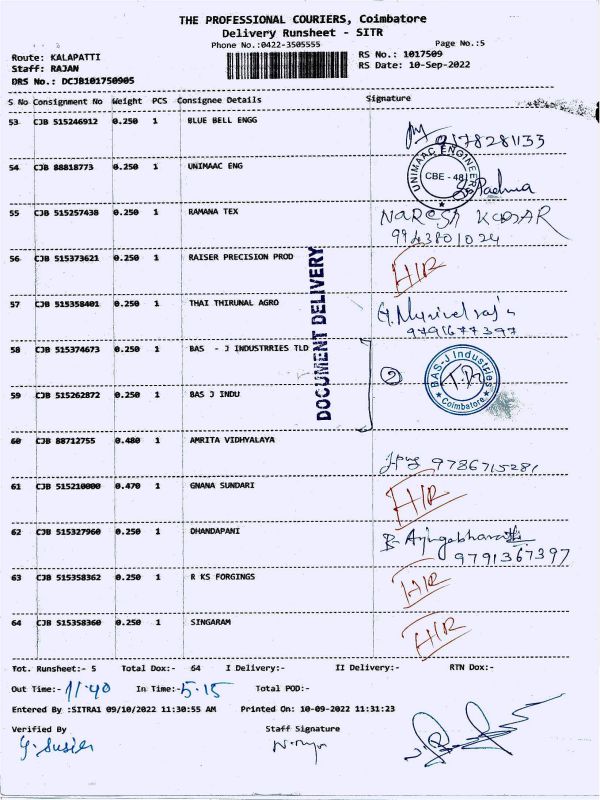 THE PROFESSIONAL COURIERS, Coimbatore
Delivery Runsheet - SITR
Phone No.:0422-3505555
Page No.:5
Route: KALAPATTI
RS No.: 1017509
Staff: RAJAN
RS Date: 10-Sep-2022
DRS No.: DCJB101750905
S No Consignment No Weight PCS Consignee Details Signature
53 CJB 515246912 0.250 1 BLUE BELL ENGG
9178281133
54 CJB 88818773 0.250 1 UNIMAAC ENG
UNIMAAC ENGINEERS
CBE - 48
S. Padma
55 CJB 515257438 0.250 1 RAMANA TEX NARESH KUMAR
9943801024
56 CJB 515373621 0.250 1 RAISER PRECISION PROD H/R
57 CJB 515358401 0.250 1 THAI THIRUNAL AGRO
9791677397
DOCUMENT DELIVERY
58 CJB 515374673 0.250 1 BAS - J INDUSTRRIES TLD
2
BAS-J Industries
Coimbatore
59 CJB 515262872 0.250 1 BAS J INDU
60 CJB 88712755 0.480 1 AMRITA VIDHYALAYA
9786715281
61 CJB 515210000 0.470 1 GNANA SUNDARI H/R
62 CJB 515327960 0.250 1 DHANDAPANI
9791367397
63 CJB 515358362 0.250 1 R KS FORGINGS H/R
64 CJB 515358360 0.250 1 SINGARAM H/R
Tot. Runsheet:- 5 Total Dox:- 64 I Delivery:- II Delivery:- RTN Dox:-
Out Time:- 11.40 In Time:- 5.15 Total POD:-
Entered By :SITRA1 09/10/2022 11:30:55 AM Printed On: 10-09-2022 11:31:23
Verified By Staff Signature